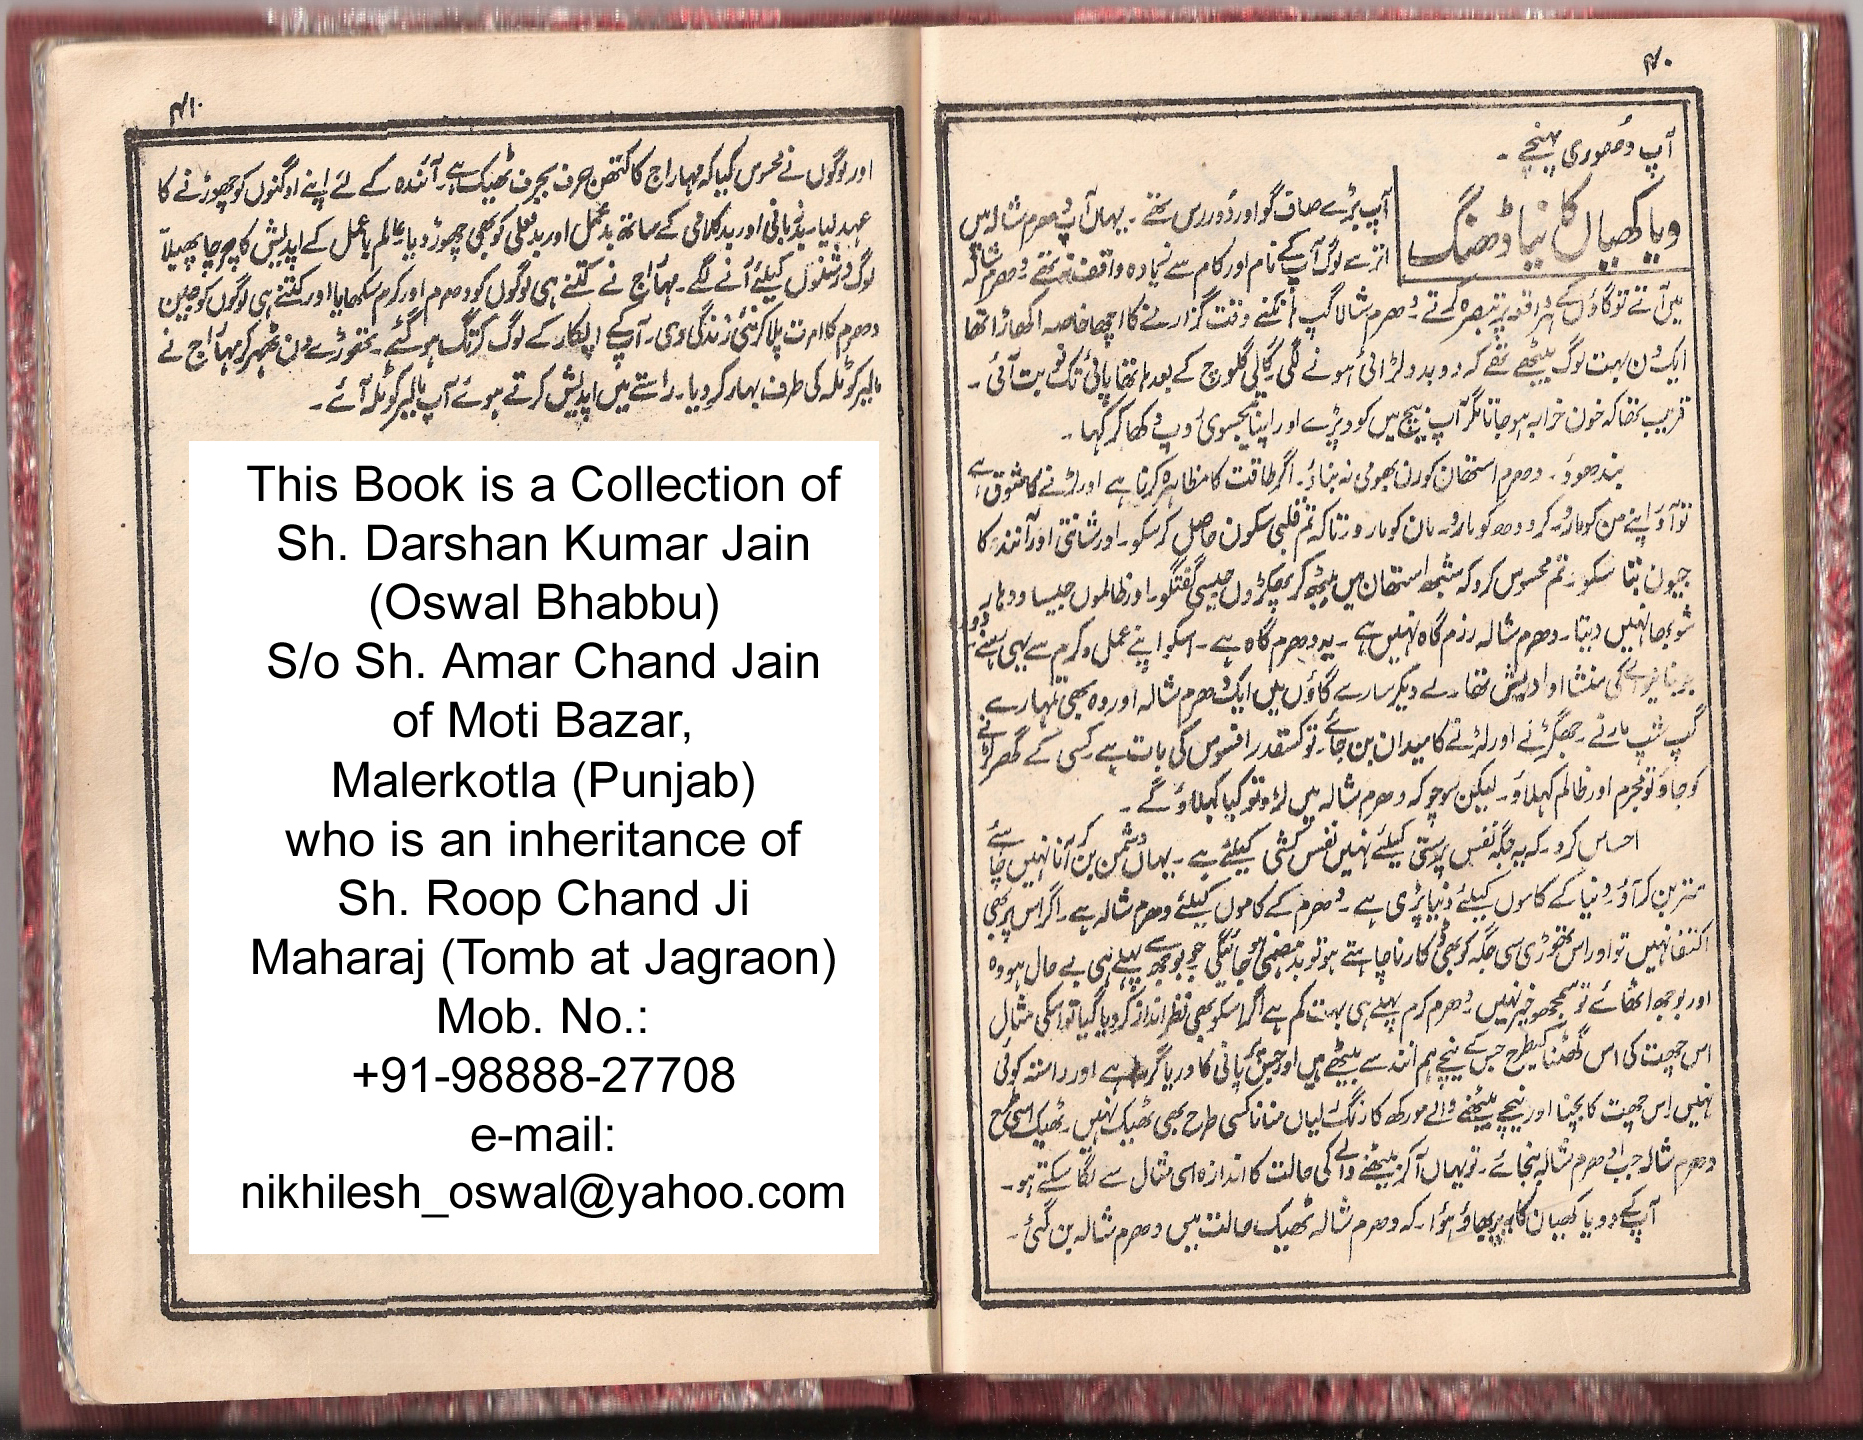 ۴۰
آپ دُھوری پہنچے۔
ویاکھیان کا نیا ڈھنگ
آپ بڑے صاف گو اور دُور رس تھے۔ یہاں آپ دھرم شالہ میں
اترے لوگ آپ کے نام اور کام سے زیادہ واقف نہ تھے دھرم شالہ
میں آتے تو گاؤں کے ہر واقعہ پر تبصرہ کرتے۔ دھرم شالا گپ ہانکنے وقت گزارنے کا اچھا خاصہ اکھاڑا تھا
ایک دن بہت لوگ بیٹھے تھے کہ دو بدو لڑائی ہونے لگی۔ گالی گلوچ کے بعد ہاتھا پائی تک نوبت آئی۔
قریب تھا کہ خون خرابہ ہو جاتا مگر آپ بیچ میں کود پڑے اور اپنا تیجسوی روپ دکھا کر کہا۔
بندھوؤ۔ دھرم استھان کو رن بھومی نہ بناؤ۔ اگر طاقت کا مظاہرہ کرنا ہے اور لڑنے کا شوق ہے
تو آؤ اپنے من کو مارو۔ کرودھ کو مارو۔ مان کو مارو تاکہ تم قلبی سکون حاصل کر سکو۔ اور شانتی اور آنند کا
جیون بِتا سکو۔ تم محسوس کرو کہ شبھ استھان میں بیٹھ کر بھچکڑوں جیسی گفتگو۔ اور ظالموں جیسا وِوہار
شوبھا نہیں دیتا۔ دھرم شالہ رزم گاہ نہیں ہے۔ یہ دھرم گاہ ہے۔ اسکو اپنے عمل و کرم سے یہی رہنے دو۔
کی منشا اور ادیش تھا۔ لے دیکر سارے گاؤں میں ایک دھرم شالہ اور وہ بھی تمہارے
گپ شپ مارنے۔ جھگڑنے اور لڑنے کا میدان بن جائے۔ تو کسقدر افسوس کی بات ہے کسی کے گھر لڑنے
کو جاؤ تو مجرم اور ظالم کہلاؤ۔ لیکن سوچو کہ دھرم شالہ میں لڑو تو کیا کہلاؤ گے۔
احساس کرو۔ کہ یہ جگہ نفس پرستی کیلئے نہیں نفس کشی کیلئے ہے۔ یہاں دشمن بن کر آنا نہیں چاہئے
متر بن کر آؤ۔ دنیا کے کاموں کیلئے دنیا پڑی ہے۔ دھرم کے کاموں کیلئے دھرم شالہ ہے۔ اگر اس پر بھی
اکتفا نہیں تو اور اس تھوڑی سی جگہ کو بھی ڈکارنا چاہتے ہو تو بدہضمی ہو جائیگی جو بوجھ سے پہلے ہی بے حال ہو وہ
اور بوجھ اٹھائے تو سمجھو خیر نہیں۔ دھرم کرم پہلے ہی بہت کم ہے اگر اسکو بھی نظر انداز کر دیا گیا تو اسکی مثال
اس چھت کی اس گھٹنا کیطرح جس کے نیچے ہم آنند سے بیٹھے ہیں اور جس پر پانی کا دریا گر رہا ہے اور راستہ کوئی
نہیں اس چھت کا بچنا اور نیچے بیٹھنے والے مورکھ کا رنگ رلیاں منانا کسی طرح بھی ٹھیک نہیں۔ ٹھیک اسی طرح
دھرم شالہ جب ادھرم شالہ بنجائے۔ تو یہاں آ کر بیٹھنے والے کی حالت کا اندازہ اسی مثال سے لگا سکتے ہو۔
آپکے ویاکھیان کا پربھاؤ ہوُا۔ کہ دھرم شالہ ٹھیک حالت میں دھرم شالہ بن گئی۔
۴۱
اور لوگوں نے محسوس کیا کہ مہاراج کا کتھن حرف بحرف ٹھیک ہے۔ آئندہ کے لئے اپنے اوگنوں کو چھوڑنے کا
عہد لیا۔ بدزبانی اور بدکلامی کے ساتھ بدعمل اور بدفعلی کو بھی چھوڑ دیا۔ عالم باعمل کے اپدیش کا چرچا پھیلا
لوگ درشنوں کیلئے آنے لگے۔ مہاراج نے کتنے ہی لوگوں کو دھرم اور کرم سکھایا اور کتنے ہی لوگوں کو جین
دھرم کا امرت پلا کر نئی زندگی دی۔ آپکے اپکار کے لوگ کرتگ ہو گئے۔ تھوڑے دن ٹھہر کر مہاراج نے
مالیر کوٹلہ کی طرف بہار کر دیا۔ راستے میں اپدیش کرتے ہوئے آپ مالیر کوٹلہ آئے۔
This Book is a Collection of
Sh. Darshan Kumar Jain
(Oswal Bhabbu)
S/o Sh. Amar Chand Jain
of Moti Bazar,
Malerkotla (Punjab)
who is an inheritance of
Sh. Roop Chand Ji
Maharaj (Tomb at Jagraon)
Mob. No.:
+91-98888-27708
e-mail:
nikhilesh_oswal@yahoo.com